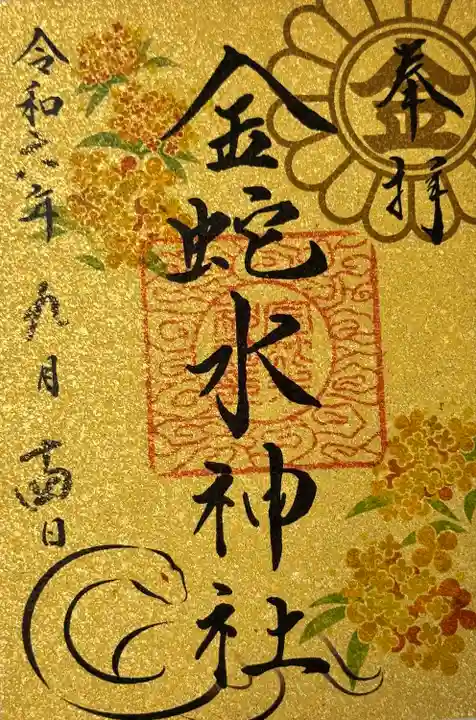 奉拝
金
金蛇水神社
令和六年 九月 十四日